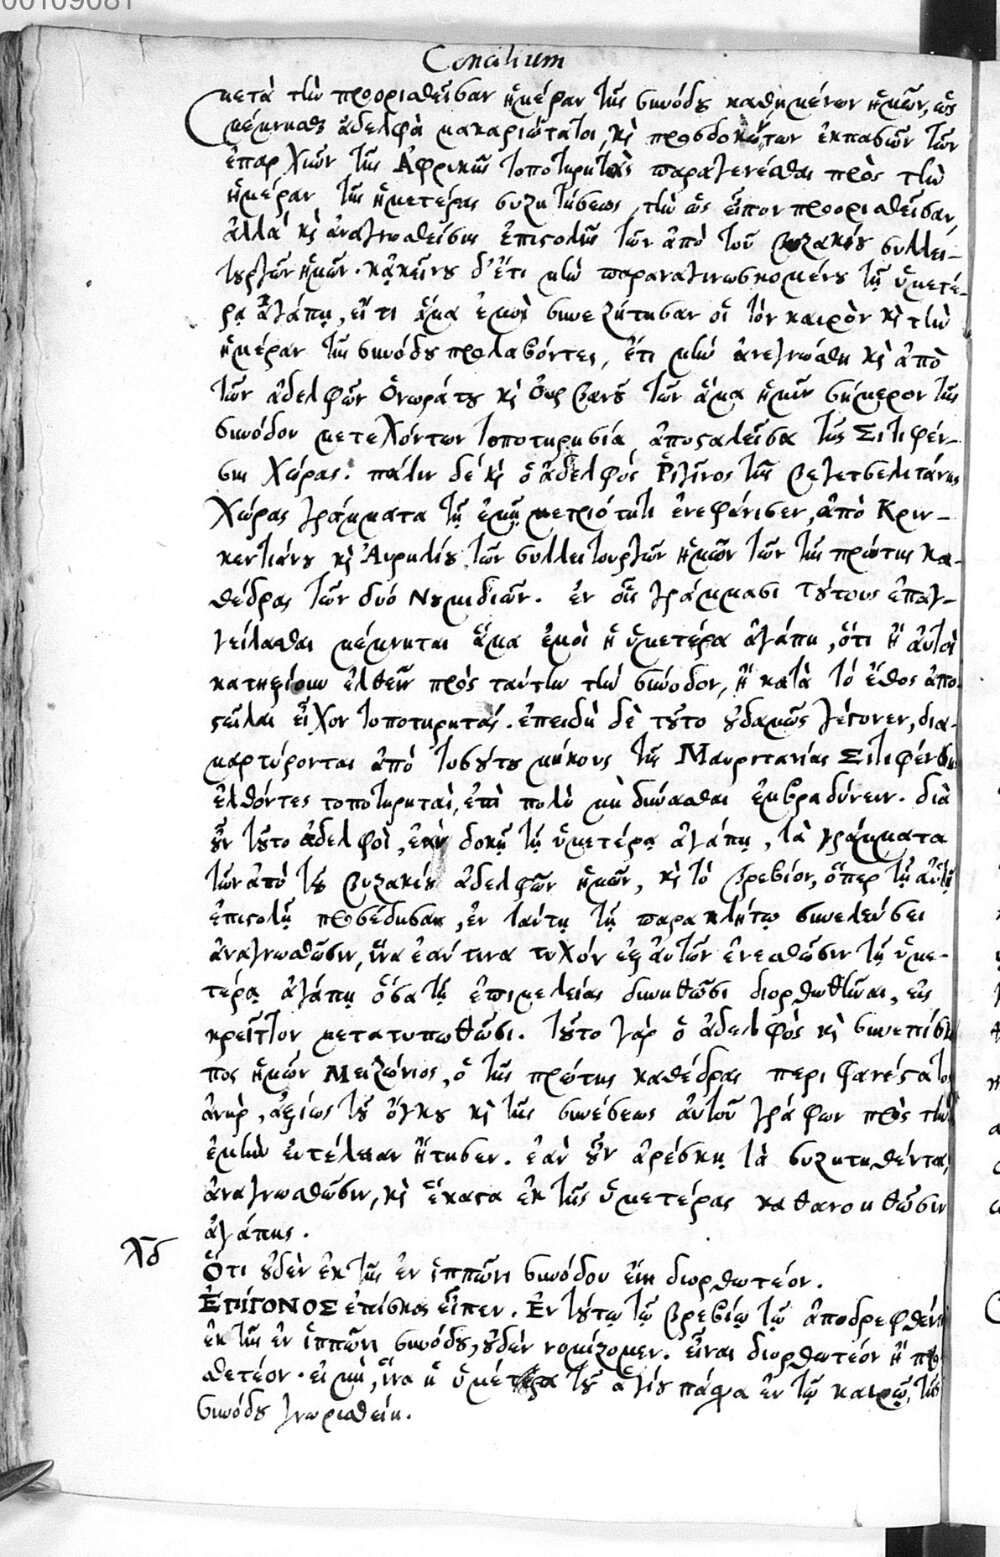 00109081
Concilium
μετὰ τὴν προορισθεῖσαν ἡμέραν τῆς συνόδου καθημένων ἡμῶν, ὡς
μέμνησθε ἀδελφοὶ μακαριώτατοι, καὶ προσδοκώντων ἐκπασῶν τῶν
ἐπαρχιῶν τῆς Ἀφρικῆς τοποτηρητὰς παραγενέσθαι πρὸς τὴν
ἡμέραν τῆς ἡμετέρας συζητήσεως, τὴν ὡς εἶπον προορισθεῖσαν,
ἀλλὰ καὶ ἀναγνωσθείσης ἐπιστολῆς τῶν ἀπὸ τοῦ Βυζακίου συλλει-
τουργῶν ἡμῶν. κἀκείνου δ' ἔτι μὴν παραναγινωσκομένου τῇ ὑμετέ-
ρᾳ ἀγάπῃ, εἴ τι ἅμα ἐμοὶ συνεζήτησαν οἱ τὸν καιρὸν καὶ τὴν
ἡμέραν τῆς συνόδου προλαβόντες, ἔτι μὴν ἀνεγνώσθη καὶ ἀπὸ
τῶν ἀδελφῶν Ὁνωράτου καὶ Οὐρβανοῦ τῶν ἅμα ἡμῖν σήμερον τῆς
συνόδου μετεχόντων τοποτηρησία ἀποσταλεῖσα τῆς Σιτιφέν-
σης χώρας. πάλιν δὲ καὶ ὁ ἀδελφὸς Ῥιγῖνος τῆς Βεγετσελιτάνης
χώρας γράμματα τῇ ἐμῇ μετριότητι ἐνεφάνισεν, ἀπὸ Κριν-
κεντιάνου καὶ Αὐρηλίου τῶν συλλειτουργῶν ἡμῶν τῶν τῆς πρώτης κα-
θέδρας τῶν δύο Νουμιδιῶν. ἐν οἷς γράμμασι τούτους ἐπαγ-
γείλασθαι μέμνηται ἅμα ἐμοὶ ἡ ὑμετέρα ἀγάπη, ὅτι ἢ αὐτοὶ
κατηξίουν ἐλθεῖν πρὸς ταύτην τὴν σύνοδον, ἢ κατὰ τὸ ἔθος ἀπο
στεῖλαι εἶχον τοποτηρητάς. ἐπειδὴ δὲ τοῦτο οὐδαμῶς γέγονεν, δια-
μαρτύρονται ἀπὸ τοσούτου μήκους τῆς Μαυριτανίας Σιτιφένσης
ἐλθόντες τοποτηρηταὶ, ἐπὶ πολὺ μὴ δύνασθαι ἐμβραδύνειν. διὰ
οὖν τοῦτο ἀδελφοὶ, ἐὰν δοκῇ τῇ ὑμετέρᾳ ἀγάπῃ, τὰ γράμματα
τῶν ἀπὸ τοῦ Βυζακίου ἀδελφῶν ἡμῶν, καὶ τὸ βρεβίον, ὅπερ τῇ αὐτῇ
ἐπιστολῇ προσέδησαν, ἐν ταύτῃ τῇ παρακλήτῳ συνελεύσει
ἀναγνωσθῶσιν, ἵνα ἐάν τινα τυχὸν ἐξ αὐτῶν ἐνεσθῶσιν τῇ ὑμε-
τέρᾳ ἀγάπῃ ὅσα τῇ ἐπιμελείας δυνηθῶσι διορθωθῆναι, εἰς
κρεῖττον μετατυπωθῶσι. τοῦτο γὰρ ὁ ἀδελφὸς καὶ συνεπίσκο
πος ἡμῶν Μειζόνιος, ὁ τῆς πρώτης καθέδρας περιφανέστατος
ἀνὴρ, ἀξίως τοῦ ὄγκου καὶ τῆς συνέσεως αὐτοῦ γράφων πρὸς τὴν
ἐμὴν εὐτέλειαν ᾔτησεν. ἐὰν οὖν ἀρέσκῃ τὰ συζητηθέντα,
ἀναγνωσθῶσιν, καὶ ἕκαστα ἐκ τῆς ὑμετέρας κατανοηθῶσιν
ἀγάπης.
λδ
Ὅτι οὐδὲν ἐκ τῆς ἐν ἱππῶνι συνόδου εἴη διορθωτέον.
ἘΠΙΓΟΝΟΣ ἐπίσκοπος εἶπεν. Ἐν τούτῳ τῷ βρεβίῳ τῷ ἀποδρεφθέντι
ἐκ τῆς ἐν ἱππῶνι συνόδου, οὐδὲν νομίζομεν. εἶναι διορθωτέον ἢ προσ
θετέον. εἰ μὴ, ἵνα ἡ ἡμέρα τοῦ ἁγίου πάσχα ἐν τῷ καιρῷ τῆς
συνόδου γνωρισθείη.